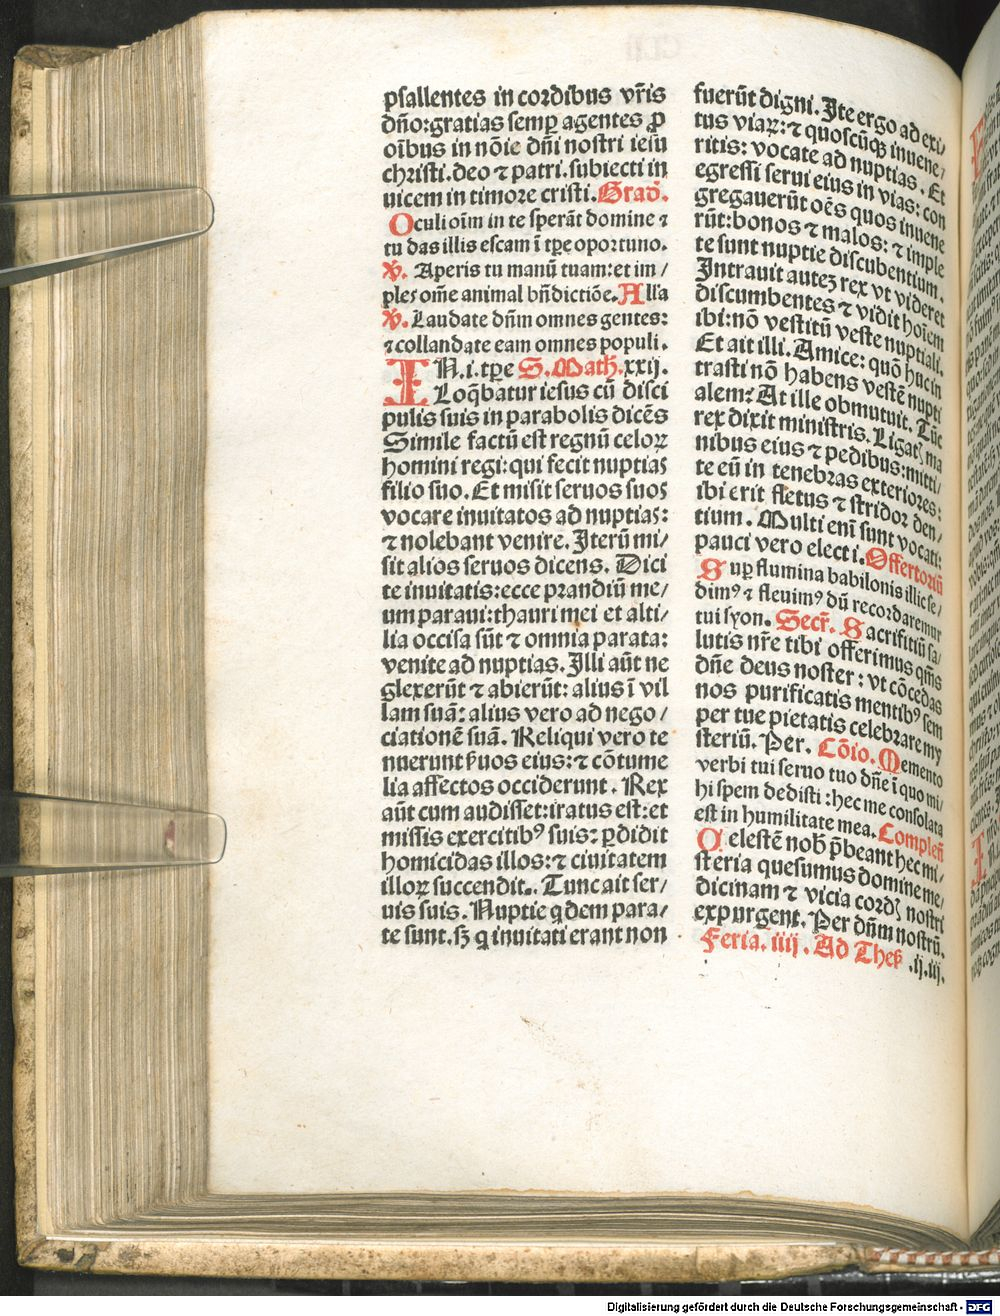 psallentes in cordibus vr̃is
dño:gratias semꝑ agentes ꝓ
oĩbus in nõie dñi nostri iesu
christi.deo ⁊ patri.subiecti in
uicem in timore cristi.Grad̃.
Oculi oĩm in te sperãt domine ⁊
tu das illis escam ĩ tꝑe oportuno.
℣. Aperis tu manũ tuam:et im/
ples om̃e animal bñdictiõe.Alľa
℣. Laudate dñm omnes gentes:
⁊ collandate eam omnes populi.
IN.i.tꝑe S.Math̃.xxij.
Loq̃batur iesus cũ disci
pulis suis in parabolis dicẽs
Simile factũ est regnũ celoꝝ
homini regi:qui fecit nuptias
filio suo.Et misit seruos suos
vocare inuitatos ad nuptias:
⁊ nolebant venire.Iterũ mi/
sit alios seruos dicens. Dici
te inuitatis:ecce prandiũ me/
um paraui:thauri mei et alti/
lia occisa sũt ⁊ omnia parata:
venite ad nuptias.Illi aũt ne
glexerũt ⁊ abierũt: alius ĩ vil
lam suã: alius vero ad nego/
ciationẽ suã. Reliqui vero te
nuerunt ẜuos eius:⁊ cõtume
lia affectos occiderunt. Rex
aũt cum audisset:iratus est:et
missis exercitibꝰ suis: ꝑdidit
homicidas illos:⁊ ciuitatem
illoꝝ succendit.. Tunc ait ser/
uis suis. Nuptie qͥdem para/
te sunt.sꝫ qͥ inuitati erant non
fuerũt digni. Ite ergo ad exi/
tus viaꝝ:⁊ quoscũqꝫ inuene/
ritis: vocate ad nuptias. Et
egressi serui eius in vias: con
gregauerũt oẽs quos inuene
rũt:bonos ⁊ malos: ⁊ imple
te sunt nuptie discubentium.
Intrauit autez rex vt videret
discumbentes ⁊ vidit hoĩem
ibi:nõ vestitũ veste nuptiali.
Et ait illi. Amice: quõ huc in
trasti nõ habens vestẽ nupti
alem: At ille obmutuit. Tũc
rex dixit ministris. Ligatꝭ ma
nibus eius ⁊ pedibus:mitti/
te eũ in tenebras exteriores:
ibi erit fletus ⁊ stridor den/
tium. Multi enĩ sunt vocati:
pauci vero electi.Offertoriũ
Suꝑ flumina babilonis illic se/
dimꝰ ⁊ fleuimꝰ dũ recordaremur
tui syon. Secr̃. Sacrifitiũ sa/
lutis nr̃e tibi offerimus qm̃s
dñe deus noster: vt cõcedas
nos purificatis mentibꝰ sem
per tue pietatis celebrare my
steriũ. Per. Cõio. Memento
verbi tui seruo tuo dñe ĩ quo mi/
hi spem dedisti:hec me consolata
est in humilitate mea. Compleñ
Celestẽ nob̃ p̃beant hec mi/
steria quesumus domine me/
dicinam ⁊ vicia cordꝭ nostri
expurgent. Per dñm nostrũ.
Feria. iiij. Ad Theẜ .ij.iij.
Digitalisierung gefördert durch die Deutsche Forschungsgemeinschaft - DFG